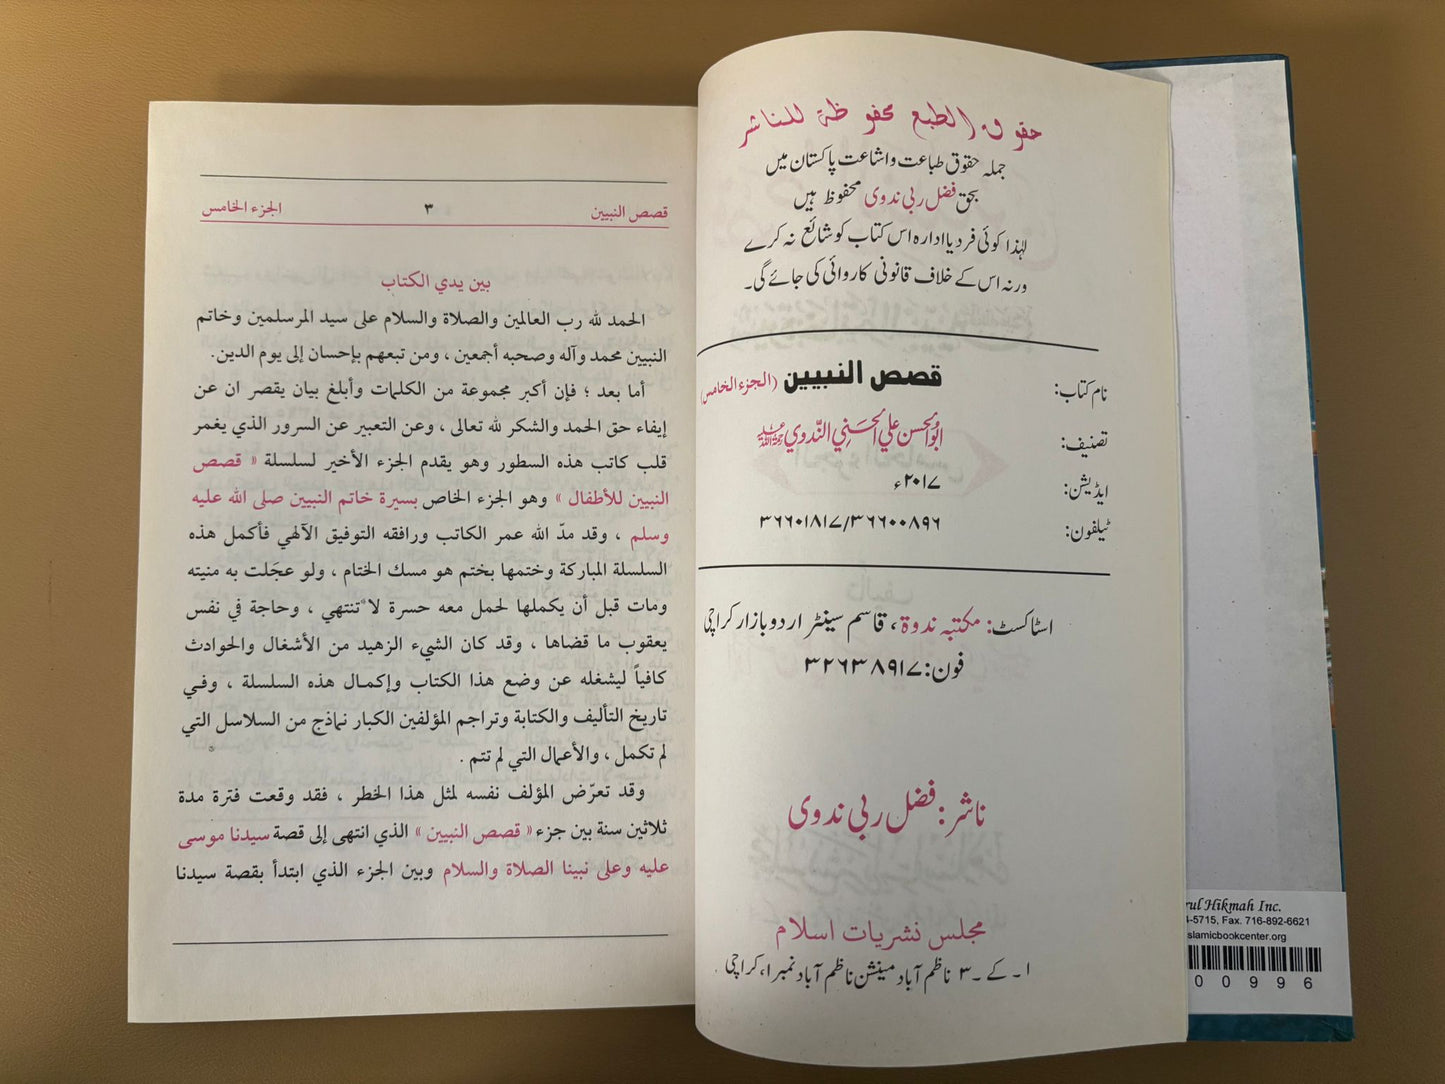 حقوق الطبع محفوظة للناشر
جملہ حقوق طباعت و اشاعت پاکستان میں
بحق فضل ربی ندوی محفوظ ہیں
لہٰذا کوئی فرد یا ادارہ اس کتاب کو شائع نہ کرے
ورنہ اس کے خلاف قانونی کاروائی کی جائے گی۔
نام کتاب: قصص النبيين (الجزء الخامس)
تصنیف: ابوالحسن علي الحسني الندوي رحمۃ اللہ علیہ
ایڈیشن: ۲۰۱۷ء
ٹیلفون: ۳۶۶۰۱۸۱۷/۳۶۶۰۰۸۹۶
اسٹاکسٹ: مکتبہ ندوۃ، قاسم سینٹر اردو بازار کراچی
فون: ۳۲۶۳۸۹۱۷
ناشر: فضل ربی ندوی
مجلس نشریات اسلام
۱۔ کے ۔ ۳ ناظم آباد مینشن ناظم آباد نمبر ۱، کراچی
قصص النبيين ٣ الجزء الخامس
بين يدي الكتاب
الحمد لله رب العالمين والصلاة والسلام على سيد المرسلمين وخاتم
النبيين محمد وآله وصحبه أجمعين ، ومن تبعهم بإحسان إلى يوم الدين.
أما بعد ؛ فإن أكبر مجموعة من الكلمات وأبلغ بيان يقصر ان عن
إيفاء حق الحمد والشكر لله تعالى ، وعن التعبير عن السرور الذي يغمر
قلب كاتب هذه السطور وهو يقدم الجزء الأخير لسلسلة « قصص
النبيين للأطفال » وهو الجزء الخاص بسيرة خاتم النبيين صلى الله عليه
وسلم ، وقد مدّ الله عمر الكاتب ورافقه التوفيق الآلهي فأكمل هذه
السلسلة المباركة وختمها بختم هو مسك الختام ، ولو عجَلت به منيته
ومات قبل أن يكملها لحمل معه حسرة لا تنتهي ، وحاجة في نفس
يعقوب ما قضاها ، وقد كان الشيء الزهيد من الأشغال والحوادث
كافياً ليشغله عن وضع هذا الكتاب وإكمال هذه السلسلة ، وفي
تاريخ التأليف والكتابة وتراجم المؤلفين الكبار نماذج من السلاسل التي
لم تكمل ، والأعمال التي لم تتم .
وقد تعرّض المؤلف نفسه لمثل هذا الخطر ، فقد وقعت فترة مدة
ثلاثين سنة بين جزء « قصص النبيين » الذي انتهى إلى قصة سيدنا موسى
عليه وعلى نبينا الصلاة والسلام وبين الجزء الذي ابتدأ بقصة سيدنا
rul Hikmah Inc.
4-5715, Fax. 716-892-6621
slamicbookcenter.org
0 0 9 9 6